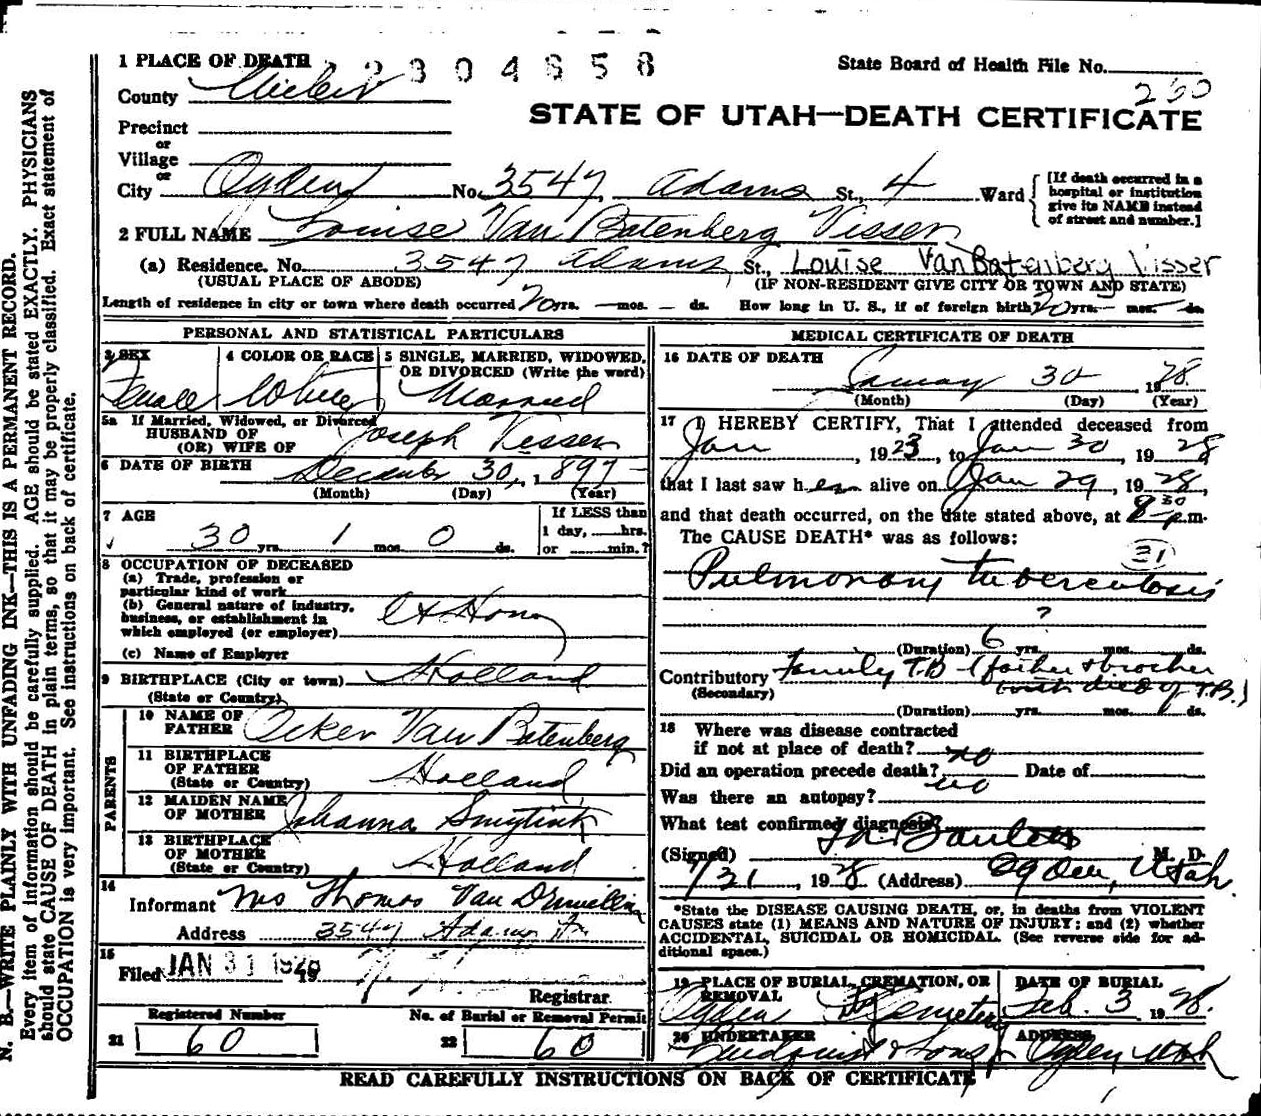 N. B.—WRITE PLAINLY WITH UNFADING INK—THIS IS A PERMANENT RECORD.
Every item of information should be carefully supplied. AGE should be stated EXACTLY. PHYSICIANS
should state CAUSE OF DEATH in plain terms, so that it may be properly classified. Exact statement of
OCCUPATION is very important. See instructions on back of certificate.
1 PLACE OF DEATH 2304858
State Board of Health File No.
County Weber
260
STATE OF UTAH—DEATH CERTIFICATE
Precinct
or
Village
or
City Ogden No. 3547 Adams St., 4 Ward
[If death occurred in a
hospital or institution
give its NAME instead
of street and number.]
2 FULL NAME Louise Van Batenberg Visser
(a) Residence. No. 3547 Adams St., Louise Van Batenberg Visser
(USUAL PLACE OF ABODE) (IF NON-RESIDENT GIVE CITY OR TOWN AND STATE)
Length of residence in city or town where death occurred 20 yrs. — mos. — ds. How long in U. S., if of foreign birth? 20 yrs. — mos. — ds.
PERSONAL AND STATISTICAL PARTICULARS
3 SEX
Female
4 COLOR OR RACE
White
5 SINGLE, MARRIED, WIDOWED,
OR DIVORCED (Write the word)
Married
5a If Married, Widowed, or Divorced
HUSBAND OF
(OR) WIFE OF Joseph Visser
6 DATE OF BIRTH December 30, 1897
(Month) (Day) (Year)
7 AGE
30 yrs. 1 mos. 0 ds.
If LESS than
1 day, hrs.
or min.?
8 OCCUPATION OF DECEASED
(a) Trade, profession or
particular kind of work
(b) General nature of industry,
business, or establishment in
which employed (or employer) At Home
(c) Name of Employer
9 BIRTHPLACE (City or town) Holland
(State or Country)
PARENTS
10 NAME OF
FATHER Van Batenberg
11 BIRTHPLACE
OF FATHER
(State or Country) Holland
12 MAIDEN NAME
OF MOTHER Johanna
13 BIRTHPLACE
OF MOTHER
(State or Country) Holland
14
Informant Mrs Thomas Van
Address 3547 Adams
15
Filed JAN 31 19
Registrar.
Registered Number No. of Burial or Removal Permit
21 60 22 60
MEDICAL CERTIFICATE OF DEATH
16 DATE OF DEATH
January 30 1928.
(Month) (Day) (Year)
17 I HEREBY CERTIFY, That I attended deceased from
Jan, 1923, to Jan 30 1928
that I last saw her alive on Jan 29, 1928,
and that death occurred, on the date stated above, at 8 30 p.m.
The CAUSE DEATH* was as follows:
31
Pulmonary tuberculosis
?
(Duration) 6 yrs. mos. ds.
Contributory Family T.B (father & brother
(Secondary) both died of T.B.)
(Duration) yrs. mos. ds.
18 Where was disease contracted
if not at place of death? no
Did an operation precede death? no Date of
Was there an autopsy?
What test confirmed diagnosis?
(Signed) M. D.
1/31, 1928 (Address) Ogden, Utah.
*State the DISEASE CAUSING DEATH, or, in deaths from VIOLENT
CAUSES state (1) MEANS AND NATURE OF INJURY; and (2) whether
ACCIDENTAL, SUICIDAL OR HOMICIDAL. (See reverse side for ad-
ditional space.)
19 PLACE OF BURIAL, CREMATION, OR
REMOVAL
Ogden Cemetery
DATE OF BURIAL
Feb. 3 1928.
20 UNDERTAKER
Lindquist & Sons
ADDRESS
Ogden Utah
READ CAREFULLY INSTRUCTIONS ON BACK OF CERTIFICATE